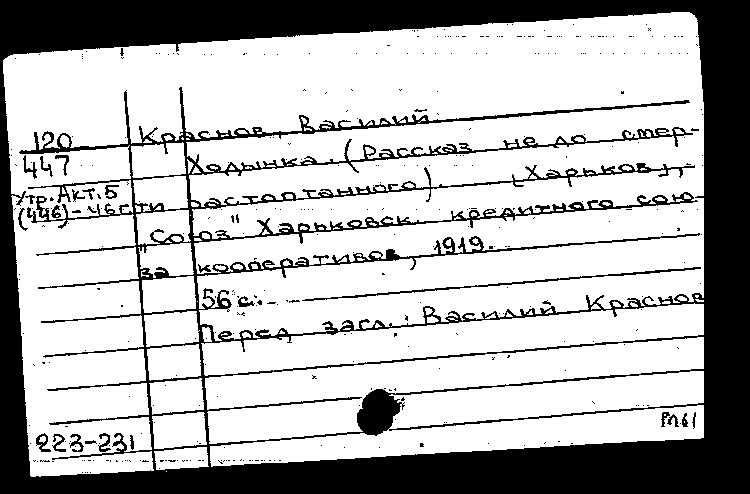 120 Краснов, Василий
447 Ходынка. (Рассказ не до смер-
Утр. Акт. 5
(446) - 46г. ти растоптанного). [Харьков],
"Союз" Харьковск. кредитного сою-
за кооперативов, 1919.
56 с.
Перед загл.: Василий Краснов
223-231